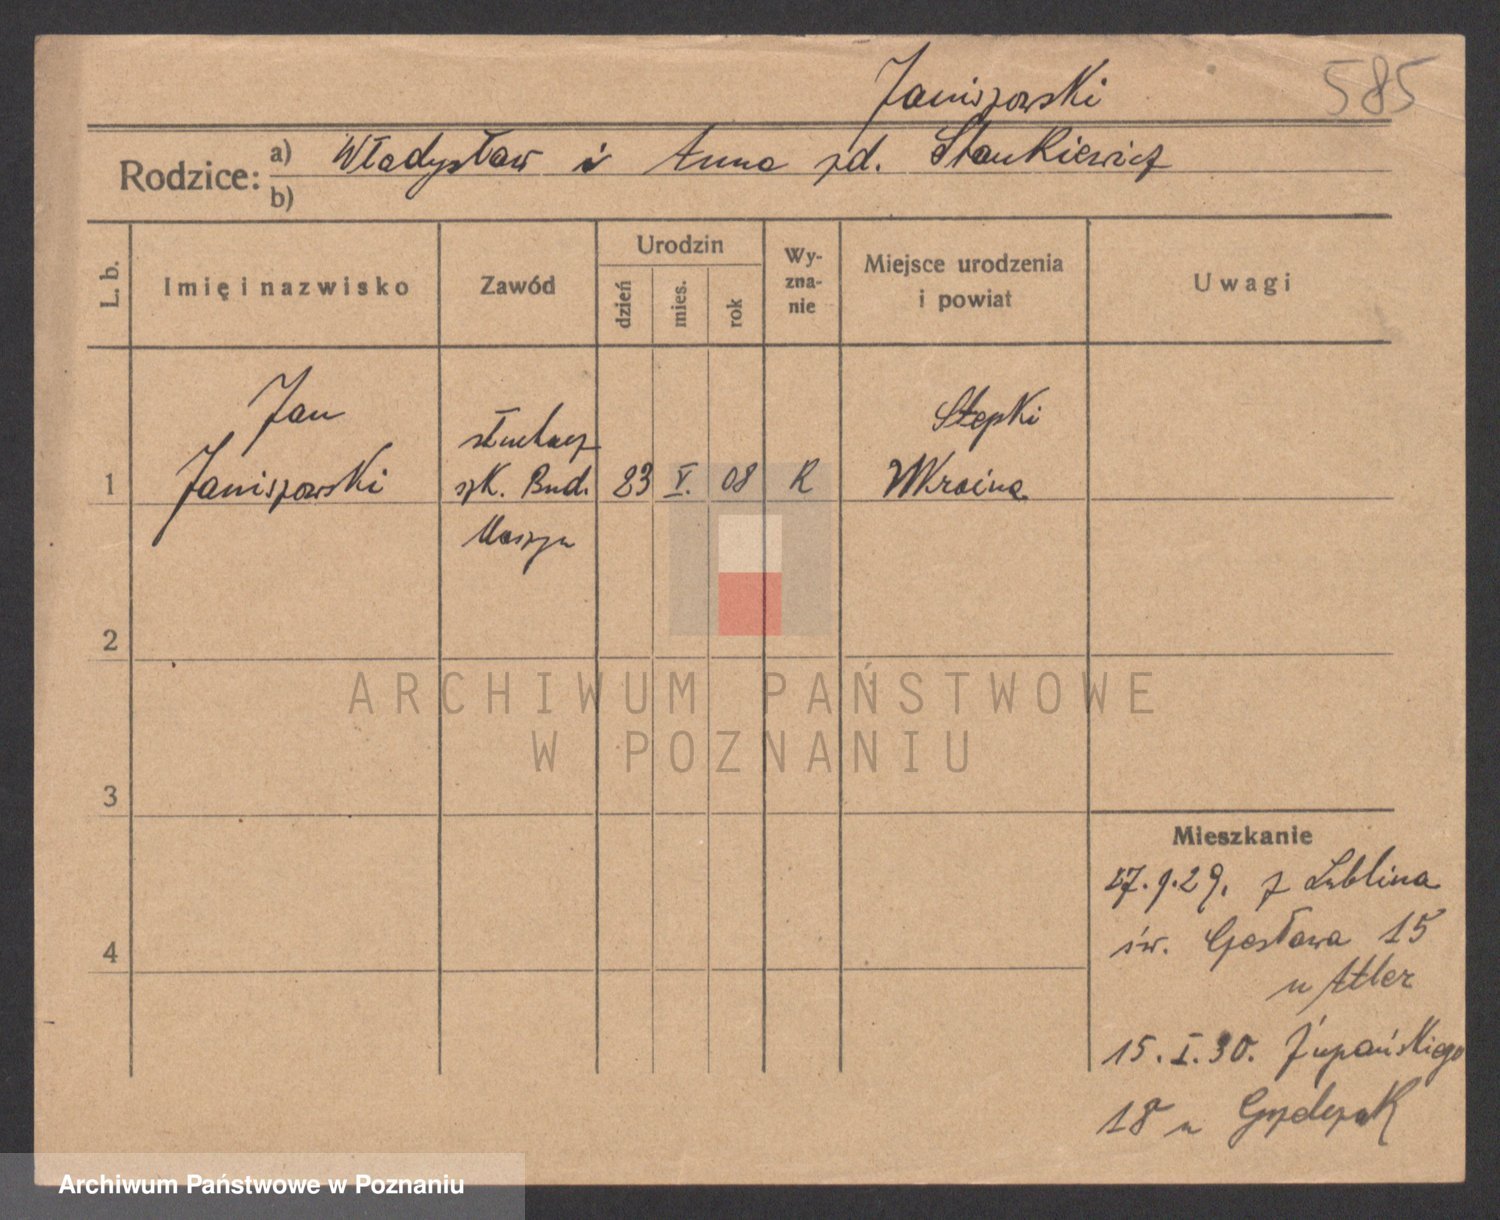 Janiszowski
585
Rodzice:
a) Władysław i Anna zd. Stankiewicz
b)
L. b.
Imię i nazwisko
Zawód
Urodzin
dzień
mies.
rok
Wy-
zna-
nie
Miejsce urodzenia
i powiat
Uwagi
Jan
Janiszowski
słuchacz
szk. Bud.
Maszyn
1
23
V.
08
R
Stepki
Ukraina
2
3
4
ARCHIWUM PAŃSTWOWE
W POZNANIU
Mieszkanie
27.9.29. z Lublina
św. Czesława 15
u Adler
15.I.30. Żupańskiego
18 u
Archiwum Państwowe w Poznaniu